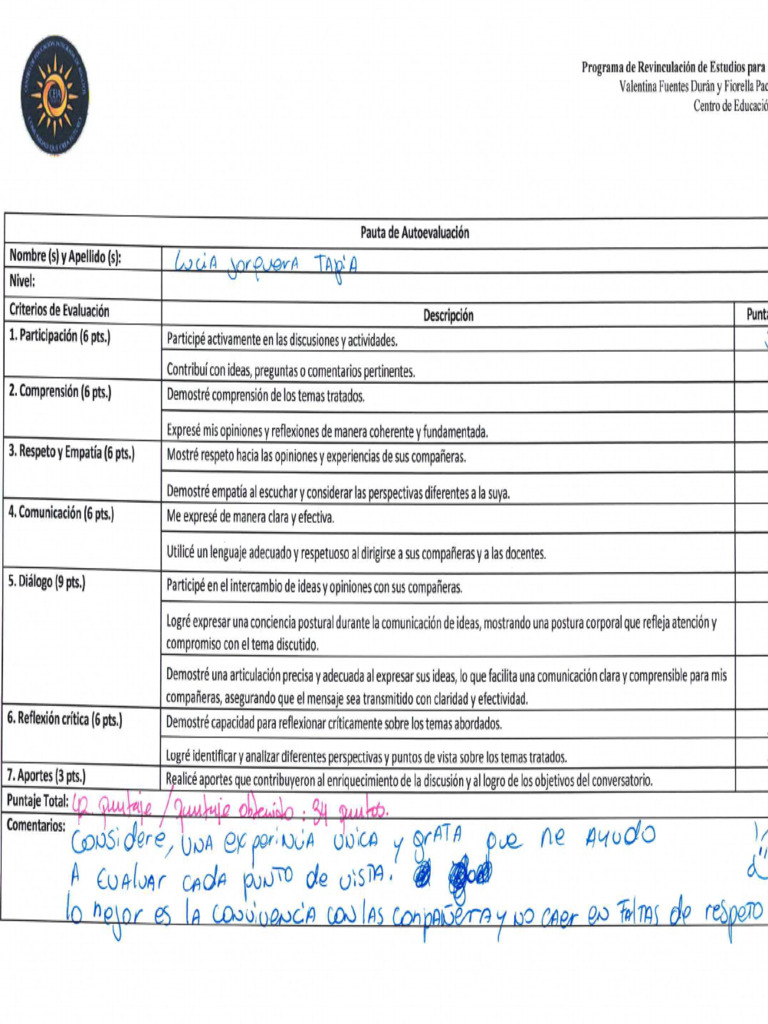 Programa de Revinculación de Estudios para
Valentina Fuentes Durán y Fiorella Pac
Centro de Educació
Pauta de Autoevaluación
Nombre (s) y Apellido (s): Lucia Jorquera Tapia
Nivel:
Criterios de Evaluación Descripción Punta
1. Participación (6 pts.) Participé activamente en las discusiones y actividades.
Contribuí con ideas, preguntas o comentarios pertinentes.
2. Comprensión (6 pts.) Demostré comprensión de los temas tratados.
Expresé mis opiniones y reflexiones de manera coherente y fundamentada.
3. Respeto y Empatía (6 pts.) Mostré respeto hacia las opiniones y experiencias de sus compañeras.
Demostré empatía al escuchar y considerar las perspectivas diferentes a la suya.
4. Comunicación (6 pts.) Me expresé de manera clara y efectiva.
Utilicé un lenguaje adecuado y respetuoso al dirigirse a sus compañeras y a las docentes.
5. Diálogo (9 pts.) Participé en el intercambio de ideas y opiniones con sus compañeras.
Logré expresar una conciencia postural durante la comunicación de ideas, mostrando una postura corporal que refleja atención y
compromiso con el tema discutido.
Demostré una articulación precisa y adecuada al expresar sus ideas, lo que facilita una comunicación clara y comprensible para mis
compañeras, asegurando que el mensaje sea transmitido con claridad y efectividad.
6. Reflexión crítica (6 pts.) Demostré capacidad para reflexionar críticamente sobre los temas abordados.
Logré identificar y analizar diferentes perspectivas y puntos de vista sobre los temas tratados.
7. Aportes (3 pts.) Realicé aportes que contribuyeron al enriquecimiento de la discusión y al logro de los objetivos del conversatorio.
Puntaje Total: 42 puntaje / puntaje obtenido: 34 puntos.
Comentarios: Considere, una experincia única y grata que me ayudo
a evaluar cada punto de vista.
lo mejor es la convivencia con las compañera y no caer en faltas de respeto